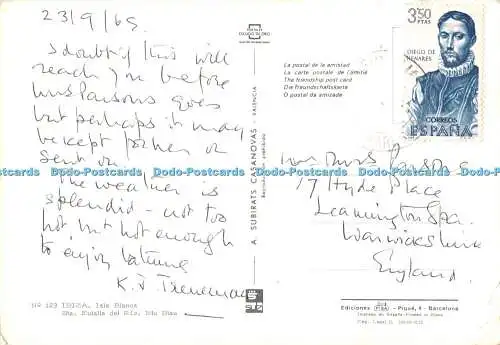 23/9/65.
I doubt if this will
reach you before
Mrs Parsons goes
but perhaps it may
be kept for her or
sent on.
The weather is
splendid - not too
hot but hot enough
to enjoy bathing
K. J.
Nº 129 IBIZA, Isla Blanca
Sta. Eulalia del Río,
A. SUBIRATS CASANOVAS - VALENCIA
La postal de la amistad
La carte postale de l'amitié
The friendship post card
Die freundschaftskarte
O postal da amizade
3'50
PTAS
DIEGO DE
HENARES
CORREOS
ESPAÑA
Mrs Parsons
17 Hyde Place
Leamington Spa.
Warwickshire
England.
Ediciones FISA - Barcelona
Dodo-Postcards Dodo-Postcards Dodo-Postcards
Dodo-Postcards Dodo-Postcards Dodo-Postcards